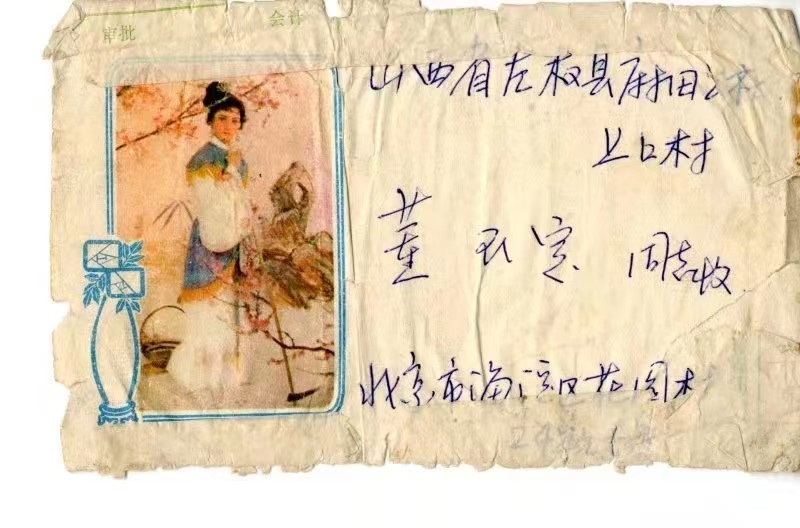 审批 会计
山西省左权县麻田公社
上口村
董玉宽 同志收
北京市海淀区花园村